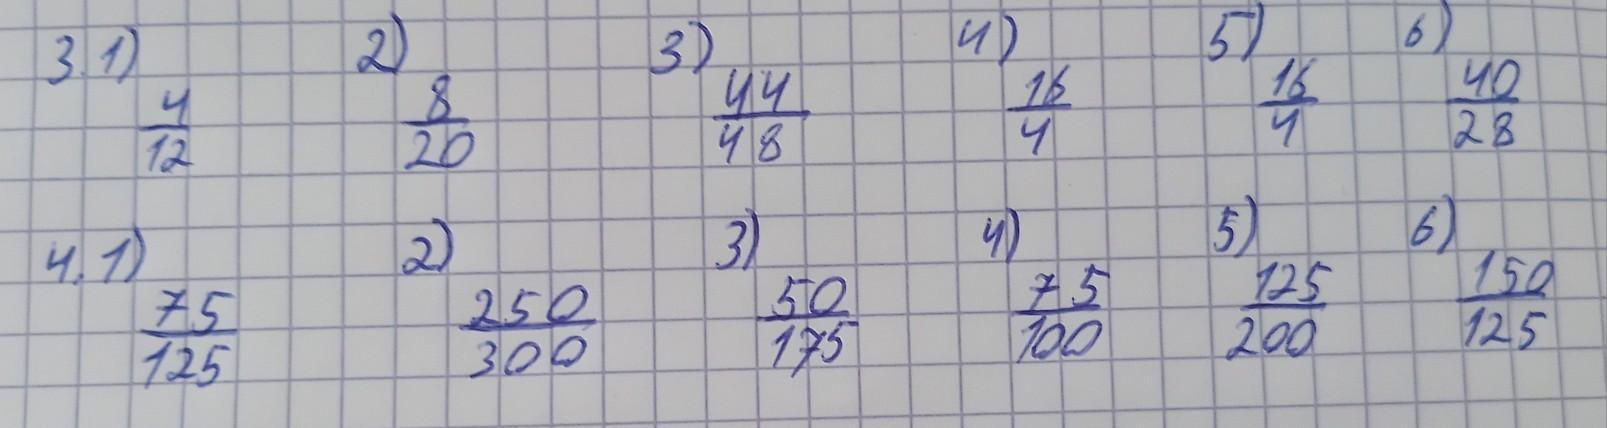 3. 1) 4/12 2) 8/20 3) 44/48 4) 16/4 5) 16/4 6) 40/28
4. 1) 75/125 2) 250/300 3) 50/175 4) 75/100 5) 125/200 6) 150/125